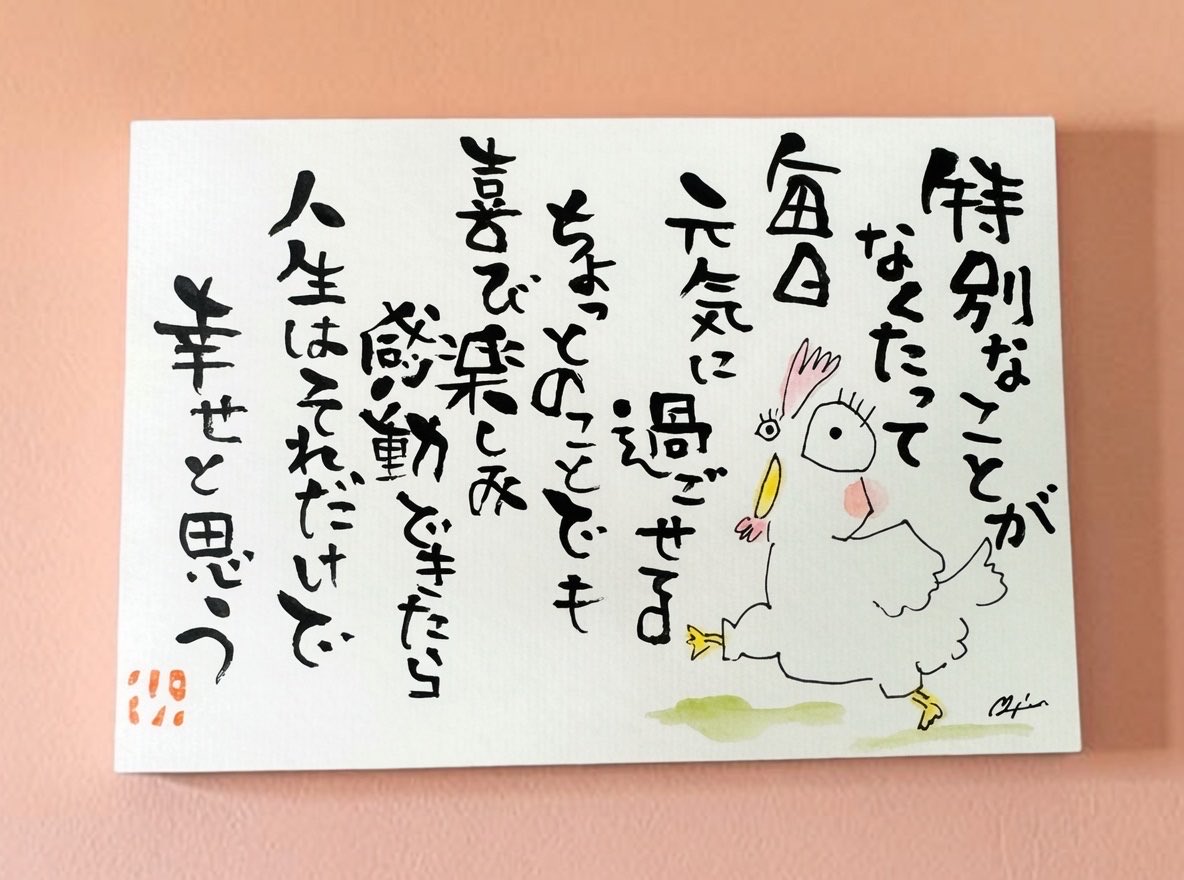 特別なことが
なくたって
毎日
元気に
過ごせる
ちょっとのことでも
喜び楽しみ
感動できたら
人生はそれだけで
幸せと思う